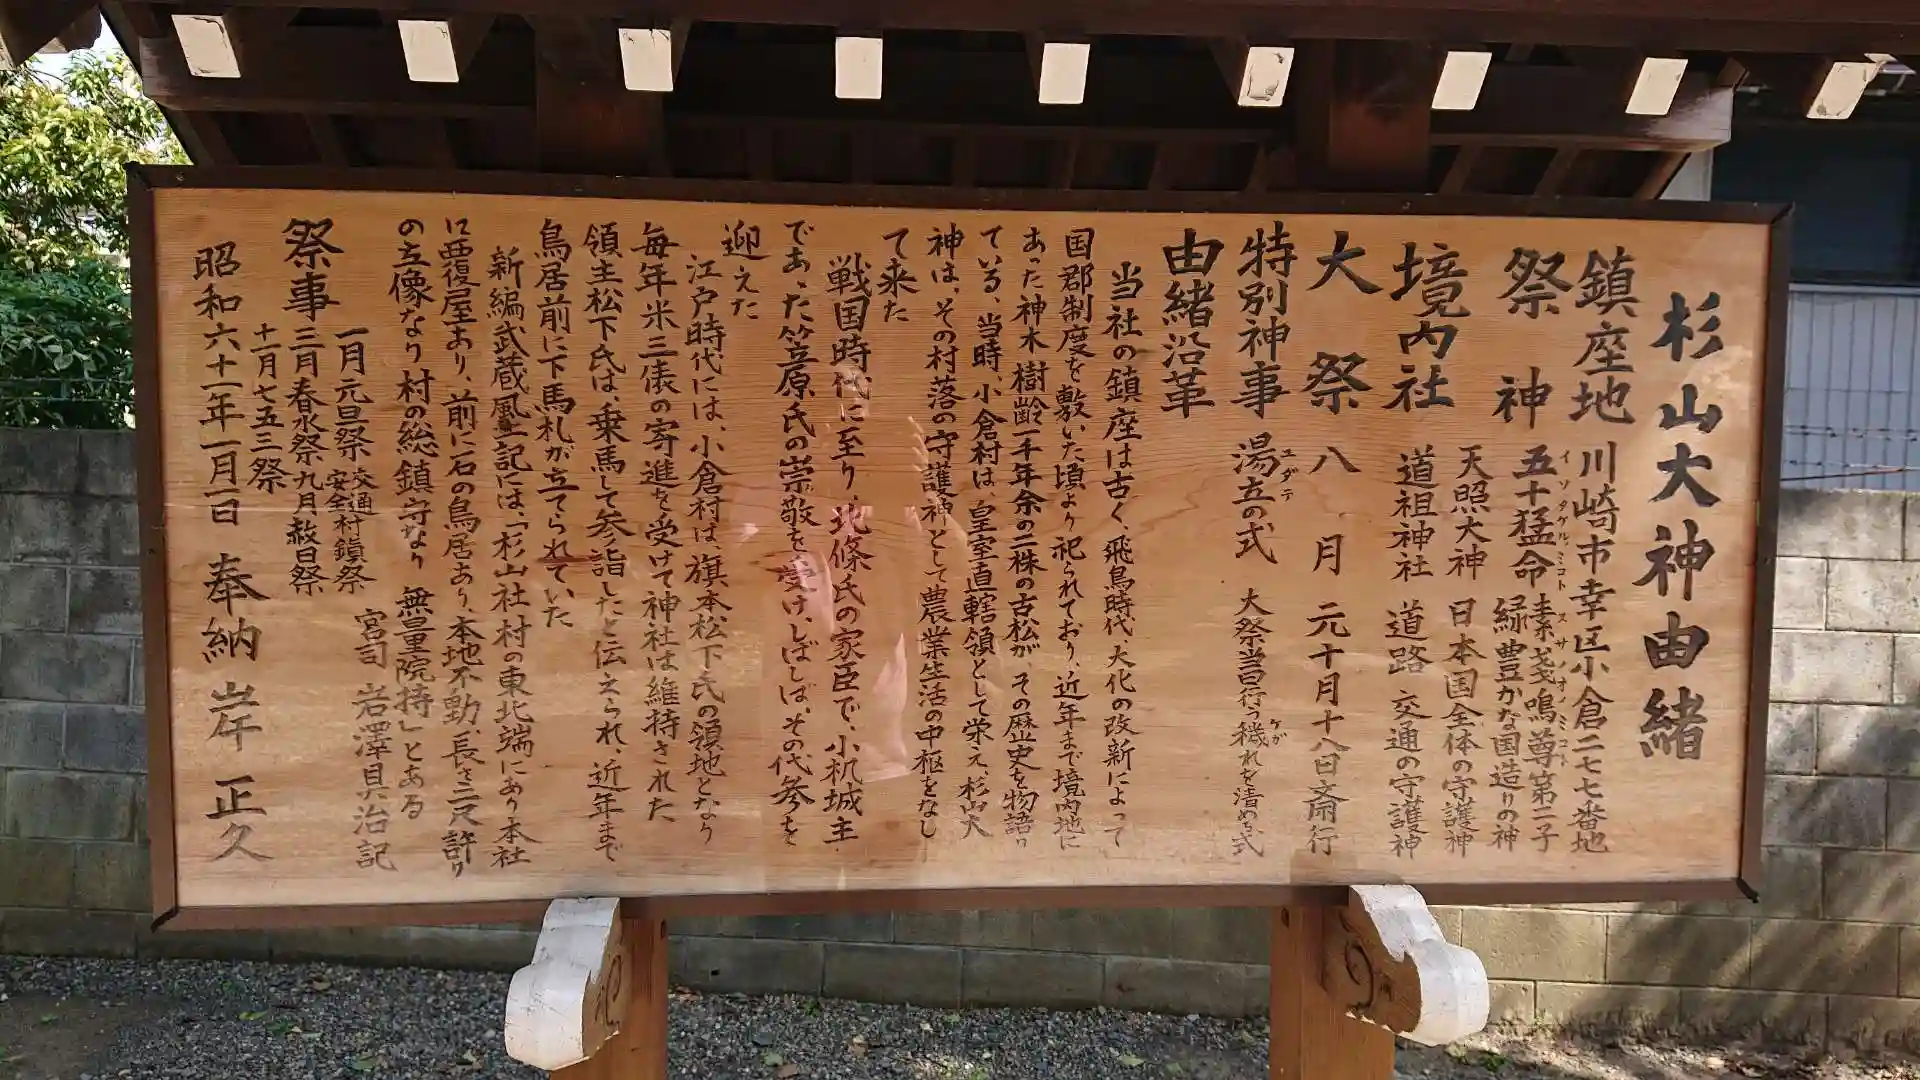 杉山大神由緒
鎮座地 川崎市幸区小倉二七七番地
祭神 五十猛命 素戔嗚尊第二子
イソタケルミコト スサノオノミコト
緑豊かな国造りの神
天照大神 日本国全体の守護神
境内社 道祖神社 道路 交通の守護神
大祭 八月 元十月十八日斎行
特別神事 湯立の式 大祭当日行う穢れを清める式
ユダテ ケガ
由緒沿革
当社の鎮座は古く、飛鳥時代、大化の改新によって
国郡制度を敷いた頃より祀られており、近年まで境内地に
あった神木樹齢一千年余の二株の古松が、その歴史を物語っ
ている、当時、小倉村は、皇室直轄領として栄え、杉山大
神は、その村落の守護神として農業生活の中枢をなし
て来た
戦国時代に至り 北條氏の家臣で、小机城主
であった笠原氏の崇敬を受け、しばしば、その代参を
迎えた
江戸時代には、小倉村は、旗本松下氏の領地となり
毎年米三俵の寄進を受けて神社は維持された
領主松下氏は、乗馬して参詣したと伝えられ、近年まで
鳥居前に下馬札が立てられていた
新編武蔵風土記には、「杉山社村の東北端にあり本社
に覆屋あり、前に石の鳥居あり、本地不動、長さ三尺許り
の立像なり村の総鎮守なり 無量院持」とある
宮司 岩澤具治記
祭事 一月元旦祭 交通安全村鎮祭
三月春水祭 九月敬日祭
十一月七五三祭
昭和六十二年一月一日 奉納 岸正久